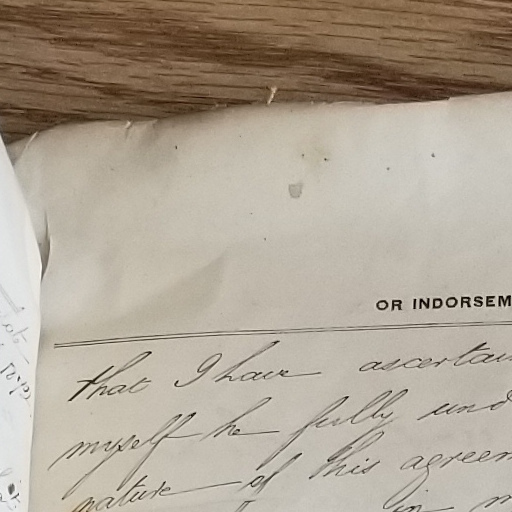 OR INDORSEM
that I have ascertai
myself he fully und
nature of this agreem
in m